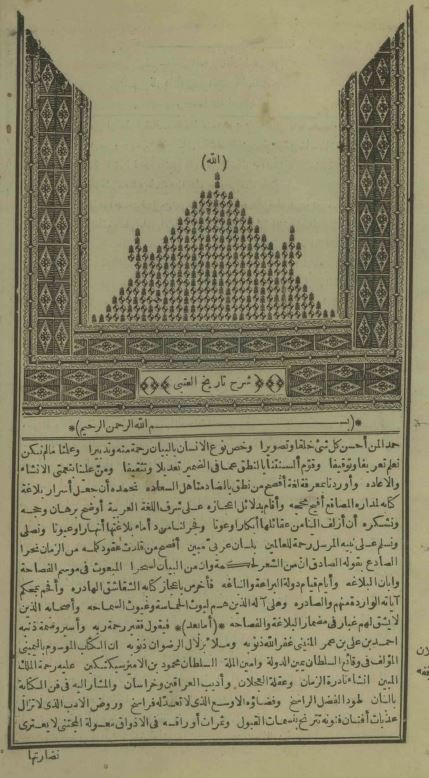 (الله)
شرح تاريخ العتبى
*(بسم الله الرحمن الرحيم)*
حمدا لمن أحسن كل شئ خلقا وتصويرا وخص نوع الانسان بالبيان رحمة منه وتدبيرا وعلمنا مالم نكن
نعلم تعريفا وتوقيفا وقوّم ألسنتنا بالنطق عما فى الضمير تعديلا وتثقيفا ومنّ علينا بنعمتى الانشاء
والاعاده وأوردنا بمعرفة لغة أفصح من نطق بالضاد مناهل السعاده نحمده أن جعل أسرار بلاغة
كتابه لمداره المصاقع أفيح محجه وأقام بدلائل اعجازه على شرف اللغة العربية أوضح برهان وحجه
ونشكره أن أزلف الينا من عقائلها أبكارا وعونا وفجر لنا من دأماء بلاغتها أنهارا وعيونا ونصلى
ونسلم على نبيه المرسل رحمة للعالمين بلسان عربى مبين أفصح من قلدت عقود كلمه من الزمان نحرا
الصادع بقوله الصادق ان من الشعر لحكمة وان من البيان لسحرا المبعوث فى موسم الفصاحة
وابان البلاغه وأيام قيام دولة البراعة والنباغه فأخرس باعجاز كتابه الشقاشق الهادره وأفحم بمحكم
آياته الواردة منهم والصادره وعلى آله الذين هم ليوث الحماسة وغيوث السماحه وأصحابه الذين
لا يشق لهم غبار فى مضمار البلاغة والفصاحه *(أما بعد)* فيقول فقير رحمة ربه وأسير وصمة ذنبه
احمد بن على بن عمر المنينى غفر الله ذنوبه وملأ بزلال الرضوان ذنوبه ان الكتاب الموسوم باليمينى
المؤلف فى وقائع السلطان يمين الدولة وامين الملة السلطان محمود بن الامير سبكتكين عليه رحمة الملك
المبين انشاء نادرة الزمان وعقلة العجلان وأديب العراقين وخراسان والمشار اليه فى فن الكتابة
بالبنان طود الفضل الراسخ وفضاؤه الاوسع الذى لا تعدله فراسخ وروض الادب الذى لا تزال
عذبات أفنان فنونه تترنح بنسمات القبول وثمرات أوراقه فى الاذواق معسولة المجتنى لا يعترى
نضارتها